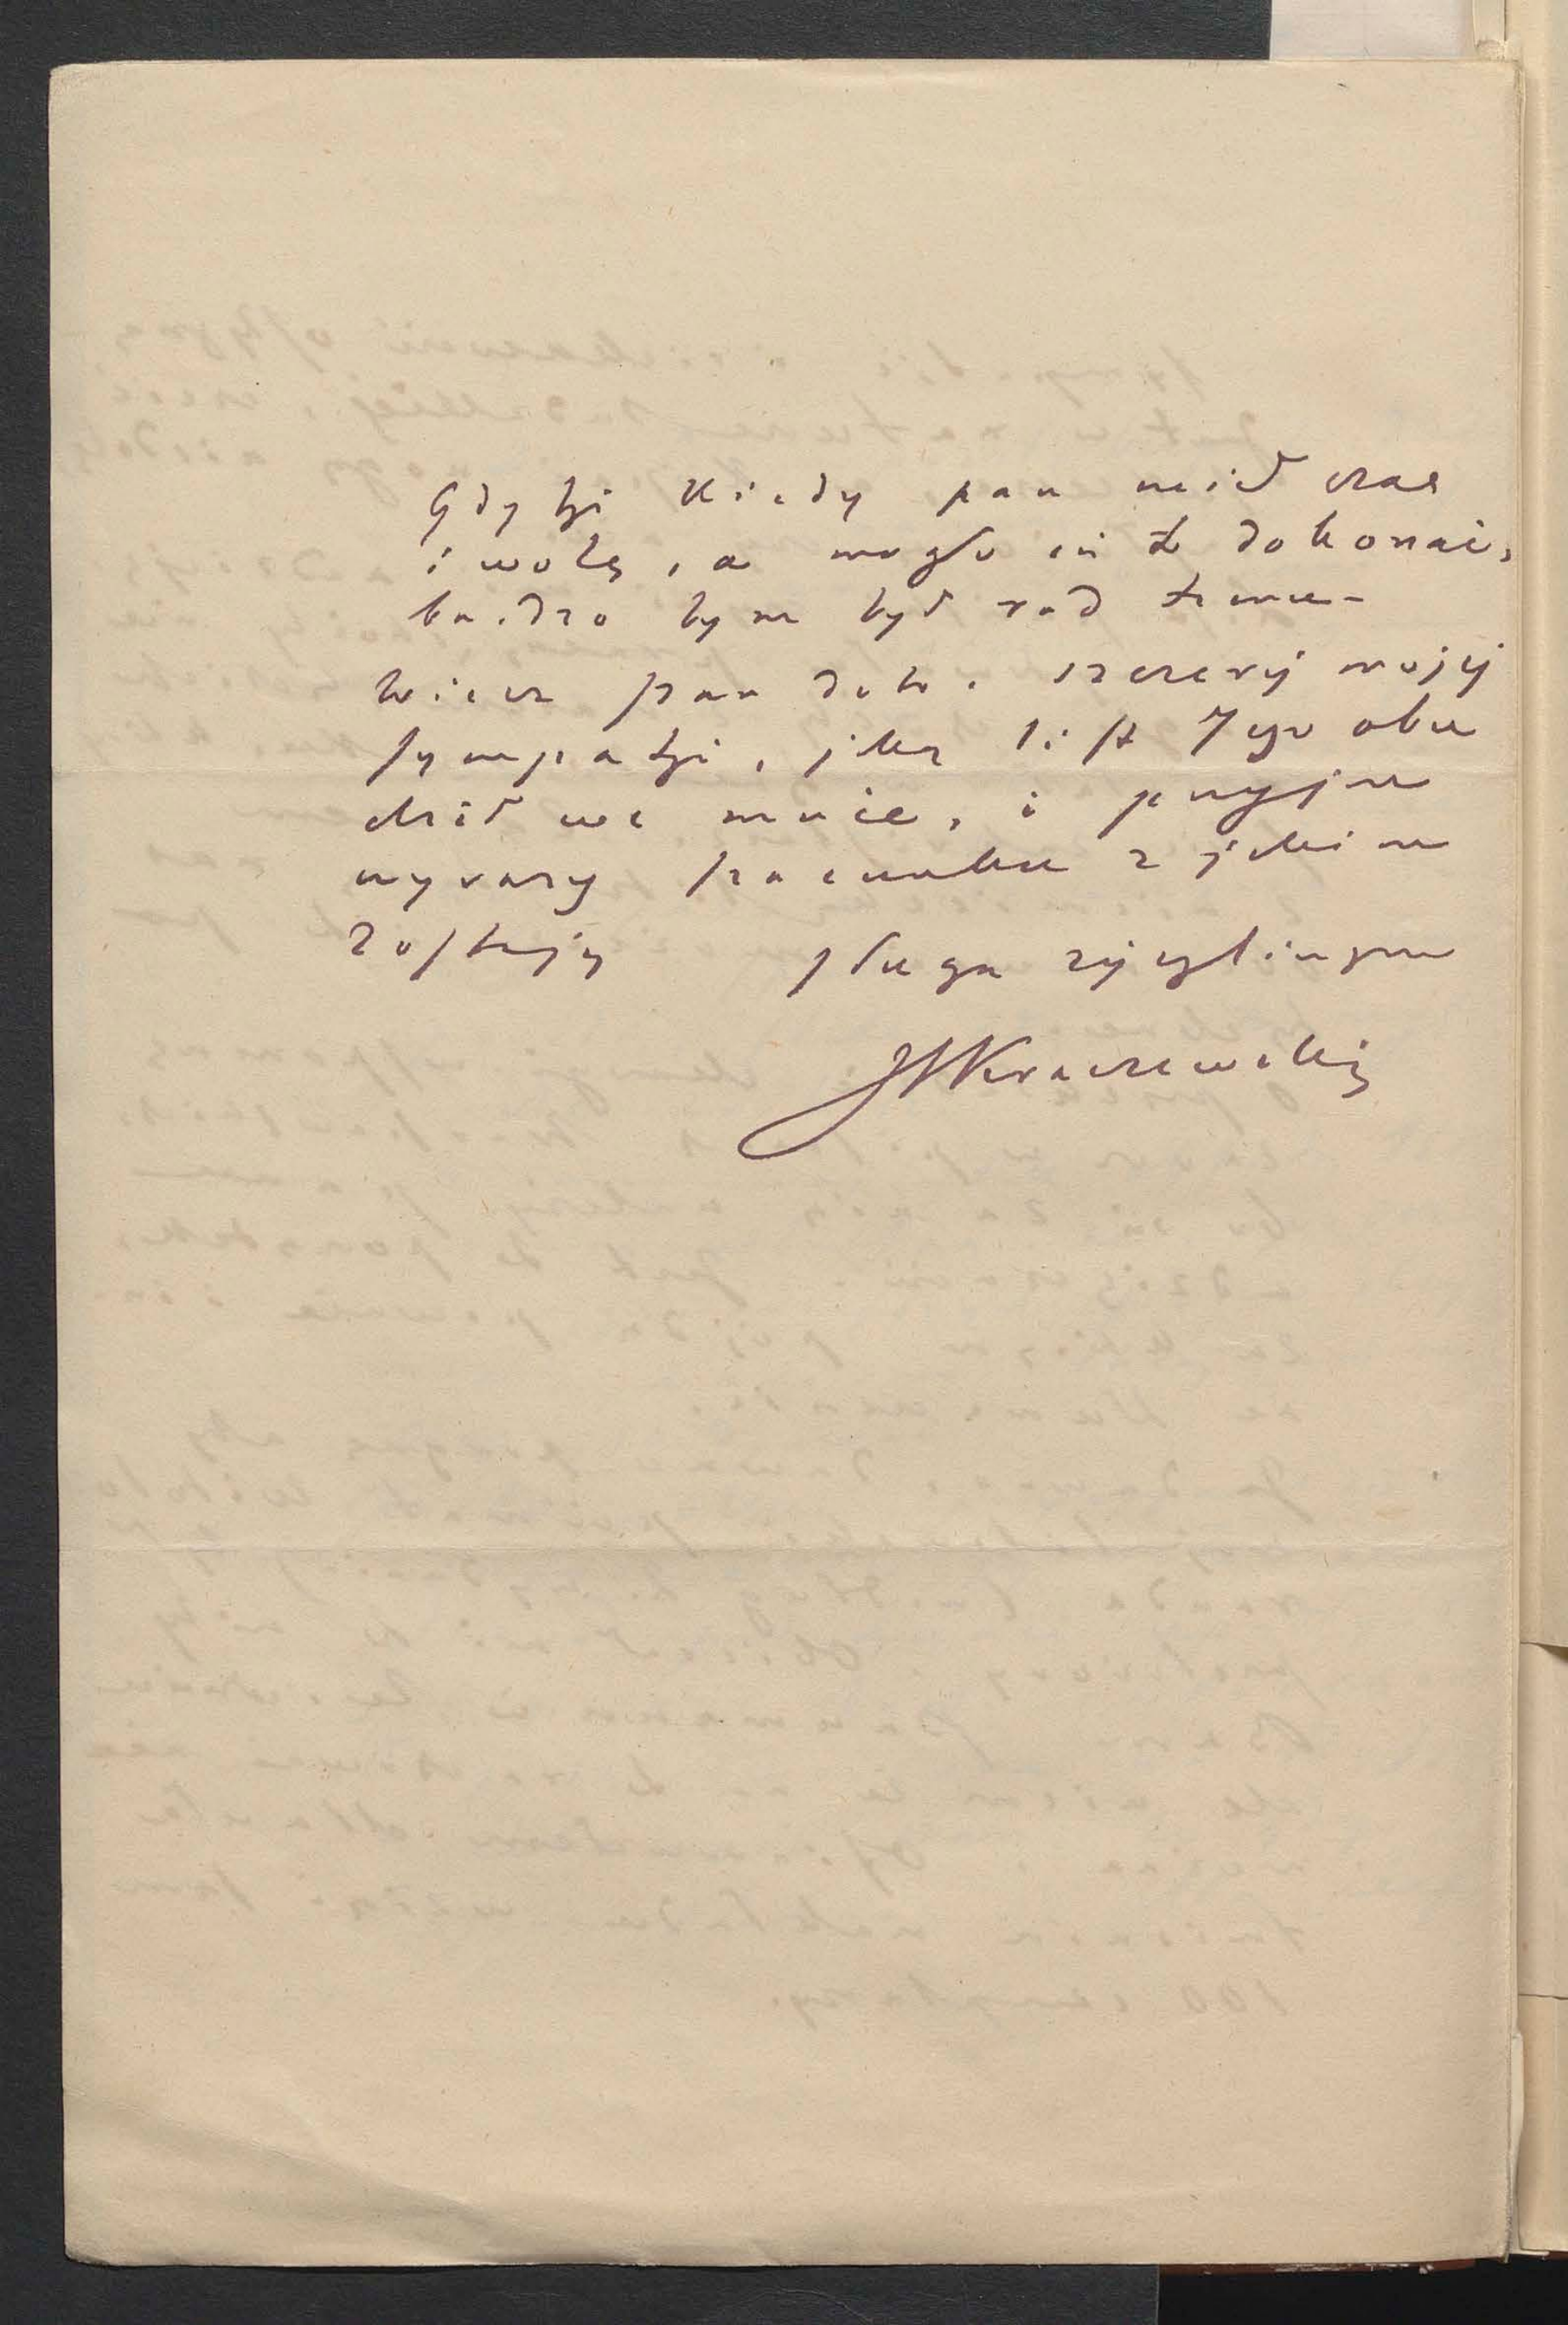 Gdyby kiedy pan miał czas
i wolą, a mogło się to dokonać,
bardzo bym był rad temu –
Wierz pan deto. szczerej mojej
sympatji, jaką list Jego obu
dził we mnie, i przyjm
wyrazy szacunku z jakim
zostaję sługa życzliwym
JIKraszewski